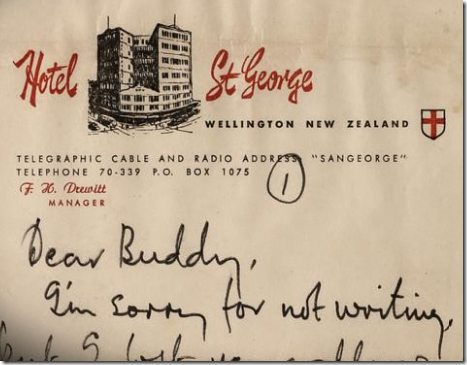 Hotel St George
WELLINGTON NEW ZEALAND
TELEGRAPHIC CABLE AND RADIO ADDRESS- "SANGEORGE"
TELEPHONE 70-339 P.O. BOX 1075
1
F. H. Drewitt
MANAGER
Dear Buddy,
I'm sorry for not writing,
but I lost